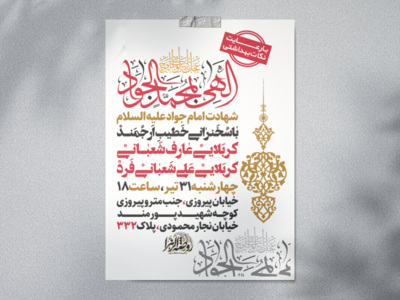 با رعایت
نکات بهداشتی
الهی بمحمد الجواد
شهادت امام جواد علیه السلام
با سخنرانی خطیب ارجمند
کربلایی عارف شعبانی
کربلایی علی شعبانی فرد
چهارشنبه ۳۱ تیر، ساعت ۱۸
خیابان پیروزی، جنب مترو پیروزی
کوچه شهید پورمند
خیابان نجار محمودی، پلاک ۳۳۲